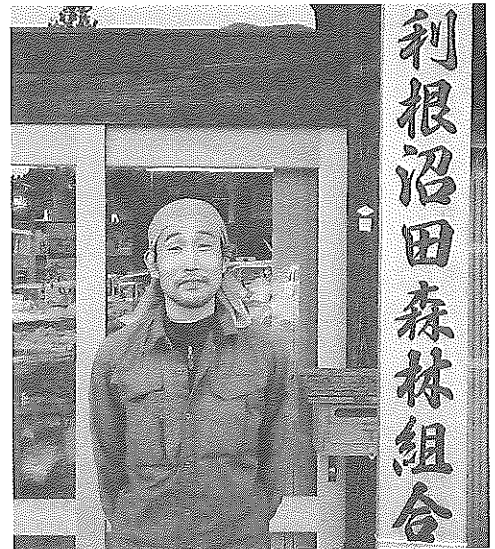 利根沼田森林組合